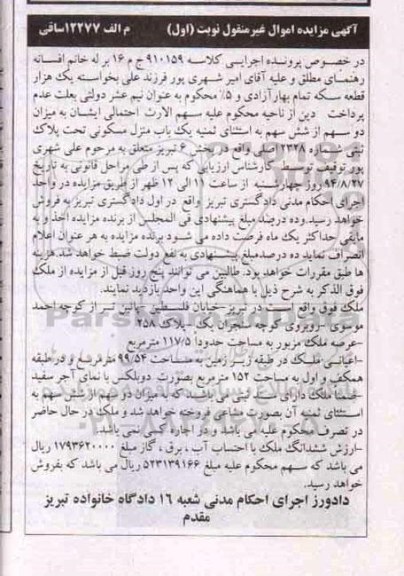 آگهی مزایده اموال غیرمنقول نوبت (اول) م الف ۱۲۲۷۷ساقی
در خصوص پرونده اجرایی کلاسه ۹۱۰۱۵۹ ج م ۱۶ بر له خانم افسانه
رهنمای مطلق و علیه آقای امیر شهری پور فرزند علی بخواسته یک هزار
قطعه سکه تمام بهار آزادی و ۵٪ محکوم به عنوان نیم عشر دولتی بعلت عدم
پرداخت دین از ناحیه محکوم علیه سهم الارث احتمالی ایشان به میزان
دو سهم از شش سهم به استثنای ثمنیه یک باب منزل مسکونی تحت پلاک
ثبتی شماره ۲۳۲۸ اصلی واقع در بخش ۶ تبریز متعلق به مرحوم علی شهری
پور توقیف و توسط کارشناس ارزیابی که پس از طی مراحل قانونی به تاریخ
۹۴/۸/۲۷ روز چهارشنبه از ساعت ۱۱ الی ۱۲ ظهر از طریق مزایده در واحد
اجرای احکام مدنی دادگستری تبریز واقع در اول دادگستری تبریز به فروش
خواهد رسید. وده درصد مبلغ پیشنهادی فی المجلس از برنده مزایده اخذ و به
مابقی حداکثر یک ماه فرصت داده می شود برنده مزایده به هر عنوان اعلام
انصراف نماید ده درصدمبلغ پیشنهادی به نفع دولت ضبط خواهد شد. هزینه
ها طبق مقررات خواهد بود. طالبین می توانند پنج روز قبل از مزایده از ملک
فوق الذکر به شرح ذیل با هماهنگی این واحد بازدید نمایند.
ملک فوق واقع است در تبریز خیابان فلسطین پائین تر از کوچه احمد
موسوی - روبروی کوچه سنجران یک - پلاک ۲۵۸
-عرصه ملک مزبور به مساحت حدودا ۱۱۷/۵ مترمربع
-اعیانی ملک در طبقه زیر زمین به مساحت ۹۹/۵۴ مترمربع و در طبقه
همکف و اول به مساحت ۱۵۲ مترمربع بصورت دوبلکس با نمای آجر سفید
-ضمنا ملک دارای سند ثبتی می باشد که به میزان دو سهم از شش سهم به
استثنای ثمنیه آن بصورت مشاعی فروخته خواهد شد و ملک در حال حاضر
در تصرف محکوم علیه می باشد و در اجاره کسی نمی باشد.
-ارزش ششدانگ ملک با احتساب آب ، برق ، گاز مبلغ ۱۷۹۳۶۲۰۰۰۰ ریال
می باشد که سهم محکوم علیه مبلغ ۵۲۳۱۳۹۱۶۶ ریال می باشد که بفروش
خواهد رسید.
دادورز اجرای احکام مدنی شعبه ۱۶ دادگاه خانواده تبریز
مقدم